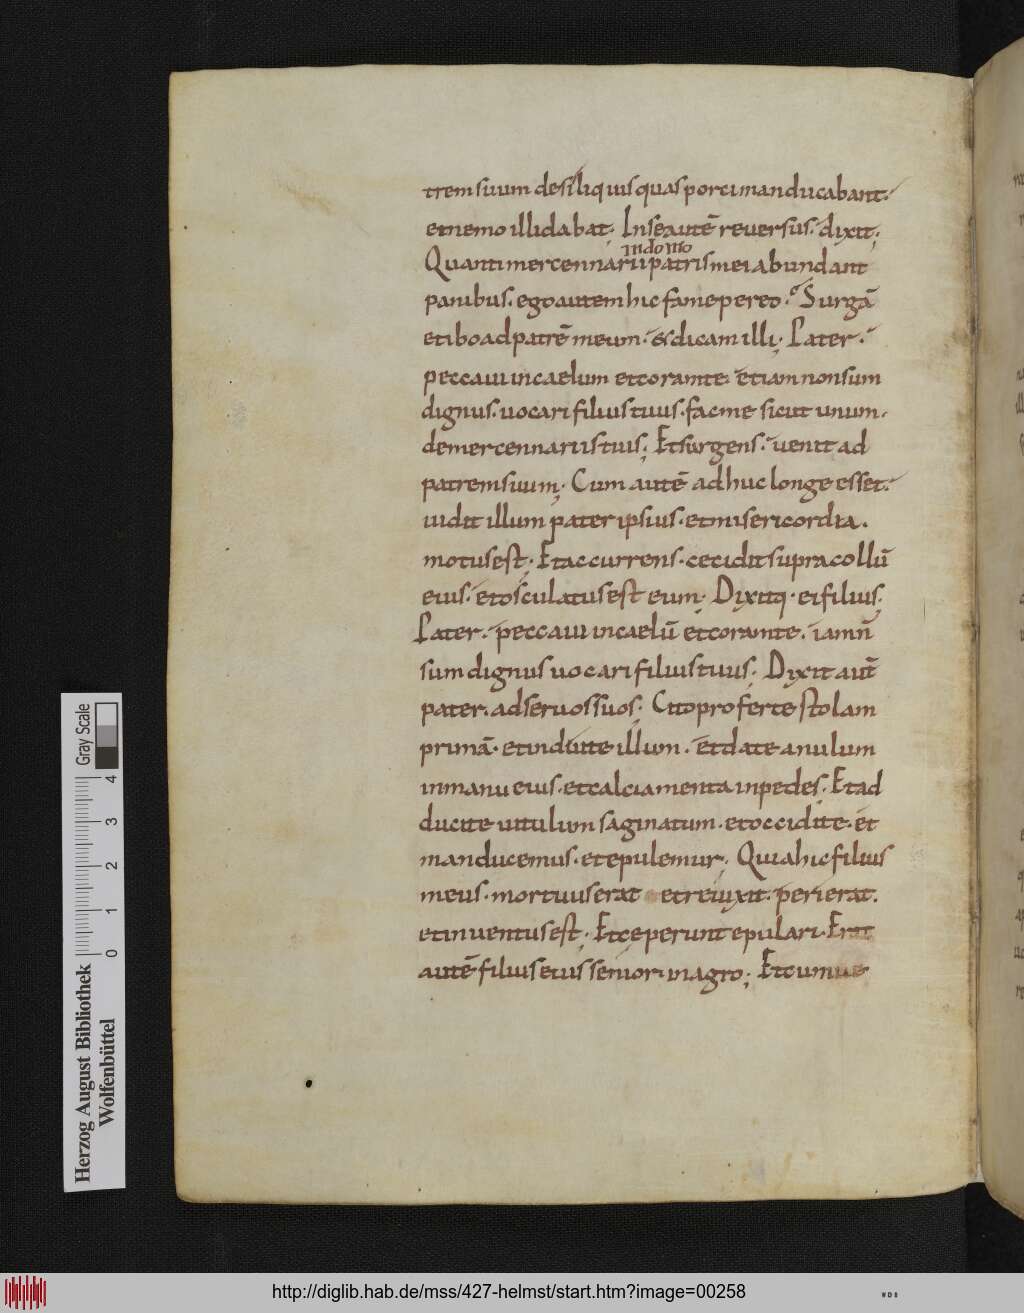 trem suum de siliquis quas porci manducabant.
et nemo illi dabat; In se autē reversus. dixit;
in domo
Quanti mercennarii patris mei abundant
panibus. ego autem hic fame pereo. Surgā
et ibo ad patrē meum. & dicam illi; Pater.
peccavi in caelum et coram te. et iam non sum
dignus. vocari filius tuus. fac me sicut unum.
de mercennariis tuis; Et surgens. venit ad
patrem suum; Cum autē adhuc longe esset.
vidit illum pater ipsius. et misericordia.
motus est; Et accurrens. cecidit supra collū
eius. et osculatus est eum; Dixitq. ei filius;
Pater. peccavi in caelū et coram te. iam n̄
sum dignus vocari filius tuus; Dixit aūt
pater. ad servos suos; Cito proferte stolam
primā. et induite illum. et date anulum
in manu eius. et calciamenta in pedes; Et ad
ducite vitulum saginatum. et occidite. et
manducemus. et epulemur; Quia hic filius
meus. mortuus erat et revixit. perierat.
et inventus est; Et ceperunt epulari. Erat
autē filius eius senior in agro; Et cum ve
Herzog August Bibliothek
Wolfenbüttel
0 1 2 3 4
Gray Scale
http://diglib.hab.de/mss/427-helmst/start.htm?image=00258